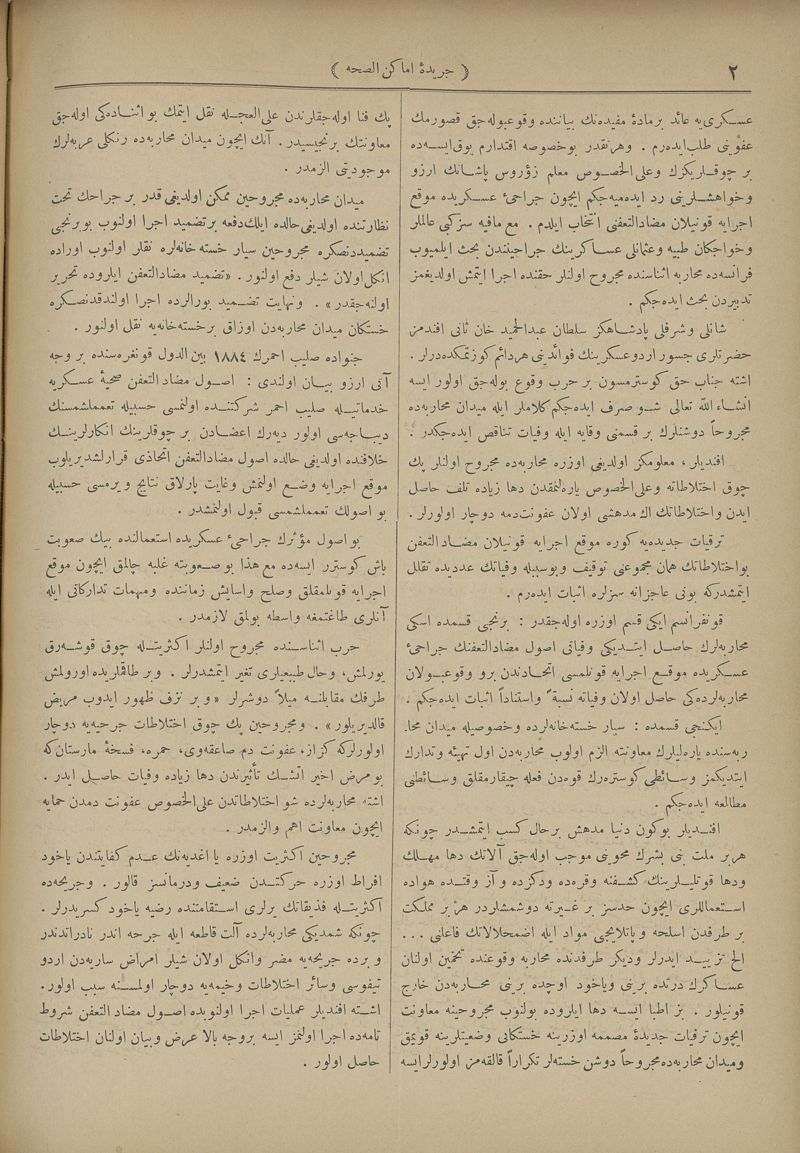 ٢
﴿ جریدهٔ اماکن الصحه ﴾
عسکری‌یه عائد بر مادهٔ مفیده‌نك بیاننده وقوعبوله‌جق قصورمك
عفوینی طلب ایده‌رم . وهر نقدر بوخصوصه اقتدارم یوق ایسه‌ده
بر چوقلریکزك وعلی الخصوص معلم زؤروس پاشانك ارزو
وخواهشلرینی رد ایده‌میه‌جکم ایچون جراحیٔ عسکریده موقع
اجرایه قونیلان مضاد التعفنی انتخاب ایلدم . مع مافیه سزکبی عالملر
وخواجکان طبیه وعثمانلی عساکرینك جراحیتندن بحث ایلمیوب
فرانسه‌ده محاربه اثناسنده مجروح اولنلر حقنده اجرا ایتمش اولدیغمز
تدبیردن بحث ایده‌جکم .
شانلی وشرفلی پادشاهکز سلطان عبدالحمید خان ثانی افندمز
حضرتلری جسور اردو عسکرینك فوائدینی هردائم کوزتمکده‌درلر .
اشته جناب حق کوسترمسون بر حرب وقوع بوله‌جق اولور ایسه
انشاء الله تعالی شو صرف ایده‌جکم کلاملر ایله میدان محاربه‌ده
مجروحاً دوشنلرك بر قسمنی وقایه ایله وفیات تناقص ایده‌جکدر .
افندیلر، معلومکز اولدیغی اوزره محاربه‌ده مجروح اولنلر پك
چوق اختلاطاته وعلی الخصوص یاره‌لنمقدن دها زیاده تلف حاصل
ایدن واختلاطاتك اك مدهشی اولان عفونت‌دمه دوچار اولورلر .
ترقیات جدیده‌یه کوره موقع اجرایه قونیلان مضاد التعفن
بواختلاطاتك همان مجموعنی توقیف وبوسبیله وفیاتك عددیده تقلل
ایتمشدرکه بونی عاجزانه سزلره اثبات ایده‌رم .
قونفرانسم ایکی قسم اوزره اوله‌جقدر : برنجی قسمده اسکی
محاربه‌لرك حاصل ایتدیکی وفیاتی اصول مضاد التعفنك جراحیٔ
عسکریده موقع اجرایه قونلمسی اتحادندن برو وقوعبولان
محاربه‌لرده‌کی حاصل اولان وفیاته نسبةً واستناداً اثبات ایده‌جکم .
ایکنجی قسمده : سیار خسته‌خانه‌لرده وخصوصیله میدان محا-
ربه‌سنده یاره‌لیلرك معاونته الزم اولوب محاربه‌دن اول تهیئه وتدارك
ایتدیکمز وسائطی کوستره‌رك قوه‌دن فعله چیقارمقلق وسائطنی
مطالعه ایده‌جکم .
افندیلر بوکون دنیا مدهش برحال کسب ایتمشدر چونکه
هر بر ملت بنی بشرك محوینی موجب اوله‌جق آلاتك دها مهلك
ودها قوتلیلرینك کشفنه وقره‌ده ودکزده و آز وقتده هواده
استعماللری ایچون حدسز بر غیرته دوشمشلردر هر بر مملکت
بر طرفدن اسلحه وپاتلایجی مواد ایله اضمحلالاتك فاعلی ...
الخ تزیید ایدرلر ودیکر طرفدنده محاربه وقوعنده تخمین اولنان
عساکرك درتده برینی ویاخود اوچده برینی محاربه‌دن خارج
قونیلور . بز اطبا ایسه دها ایلروده بولنوب مجروحینه معاونت
ایچون ترقیات جدیدهٔ مصممه اوزرینه خستکانی وضعیتلرینه قویمق
ومیدان محاربه‌ده مجروحاً دوشن خسته‌لر تکراراً قالقه‌مز اولورلرایسه
پك فنا اوله‌جقلرندن علی العجله نقل ایتمك بو اثناده‌کی اوله‌جق
معاونتك برنجیسیدر . آنك ایچون میدان محاربه‌ده رنکلی عربه‌لرك
موجودیتی الزمدر .
میدان محاربه‌ده مجروحین ممکن اولدیغی قدر بر جراحك تحت
نظارتنده اولدیغی حالده ایلك دفعه بر تضمید اجرا اولنوب بو برنجی
تضمیددنصکره مجروحین سیار خسته خانه‌لره نقلر اولنوب اوراده
انکل اولان شیلر دفع اولنور . « تضمید مضاد التعفن ایلروده تحریر
اولنه‌جقدر » . ونهایت تضمید بورالرده اجرا اولندقدنصکره
خستکان میدان محاربه‌دن اوزاق بر خسته‌خانه‌یه نقل اولنور .
جنواده صلیب احمرك ١٨٨٤ بین الدول قونغره‌سنده بر وجه
آتی ارزو بیان اولندی : اصول مضاد التعفن صحیهٔ عسکریه
خدماتیله صلیب احمر شرکتنده اولنمسی حسبیله تعمملشمسنك
دیباجه‌سی اولور دیه‌رك اعضادن بر چوقلرینك انکارلرینك
خلافنده اولدیغی حالده اصول مضاد التعفن اتخاذی قرارلشدیریلوب
موقع اجرایه وضع اولنمش وغایت پارلاق نتایج ویرمسی حسبیله
بو اصولك تعمملشمسی قبول اولنمشدر .
بو اصول مؤثرك جراحیٔ عسکریده استعمالنده بیك صعوبت
باش کوسترر ایسه‌ده مع هذا بو صعوبته غلبه چالمق ایچون موقع
اجرایه قونلمقلق وصلح واسایش زماننده ومهمات تدارکاتی ایله
آنلری طاغتمغه واسطه بولمق لازمدر .
حرب اثناسنده مجروح اولنلر اکثریتله چوق قوشه‌رق
یورلمش، وحال طبیعیلری تغیر ایتمشدرلر . وبر طاقملریده اورولمش
طرفك مقابلنه میلاً دوشرلر « وبر نزف ظهور ایدوب مریض
قالدیریلور » . ومجروحین پك چوق اختلاطات جرحیه‌یه دوچار
اولورلرکه کزاز، عفونت دم صاعقوی، حمره، فسخهٔ مارستان‌که
بو مرض اخیر آتشك تأثیرندن دها زیاده وفیات حاصل ایدر .
اشته محاربه‌لرده شو اختلاطاتدن علی الخصوص عفونت دمدن حمایه
ایچون معاونت اهم والزمدر .
مجروحین اکثریت اوزره یا اغدیه‌نك عدم کفایتندن یاخود
افراط اوزره حرکتدن ضعیف ودرمانسز قالور . وجریحه‌ده
اکثریتله قذیفاتك برلری استقامتنده رضیه یاخود کسریدرلر .
چونکه شمدیکی محاربه‌لرده آلت قاطعه ایله جرحه اندر نادراتدندر
وبرده جریحه‌یه مضر وانکل اولان شیلر امراض ساریه‌دن اردو
تیفوسی وسائر اختلاطات وخیمه‌یه دوچار اولمسنه سبب اولور .
اشته افندیلر عملیات اجرا اولنوبده اصول مضاد التعفن شروط
تامه‌ده اجرا اولنمز ایسه بروجه بالا عرض وبیان اولنان اختلاطات
حاصل اولور .